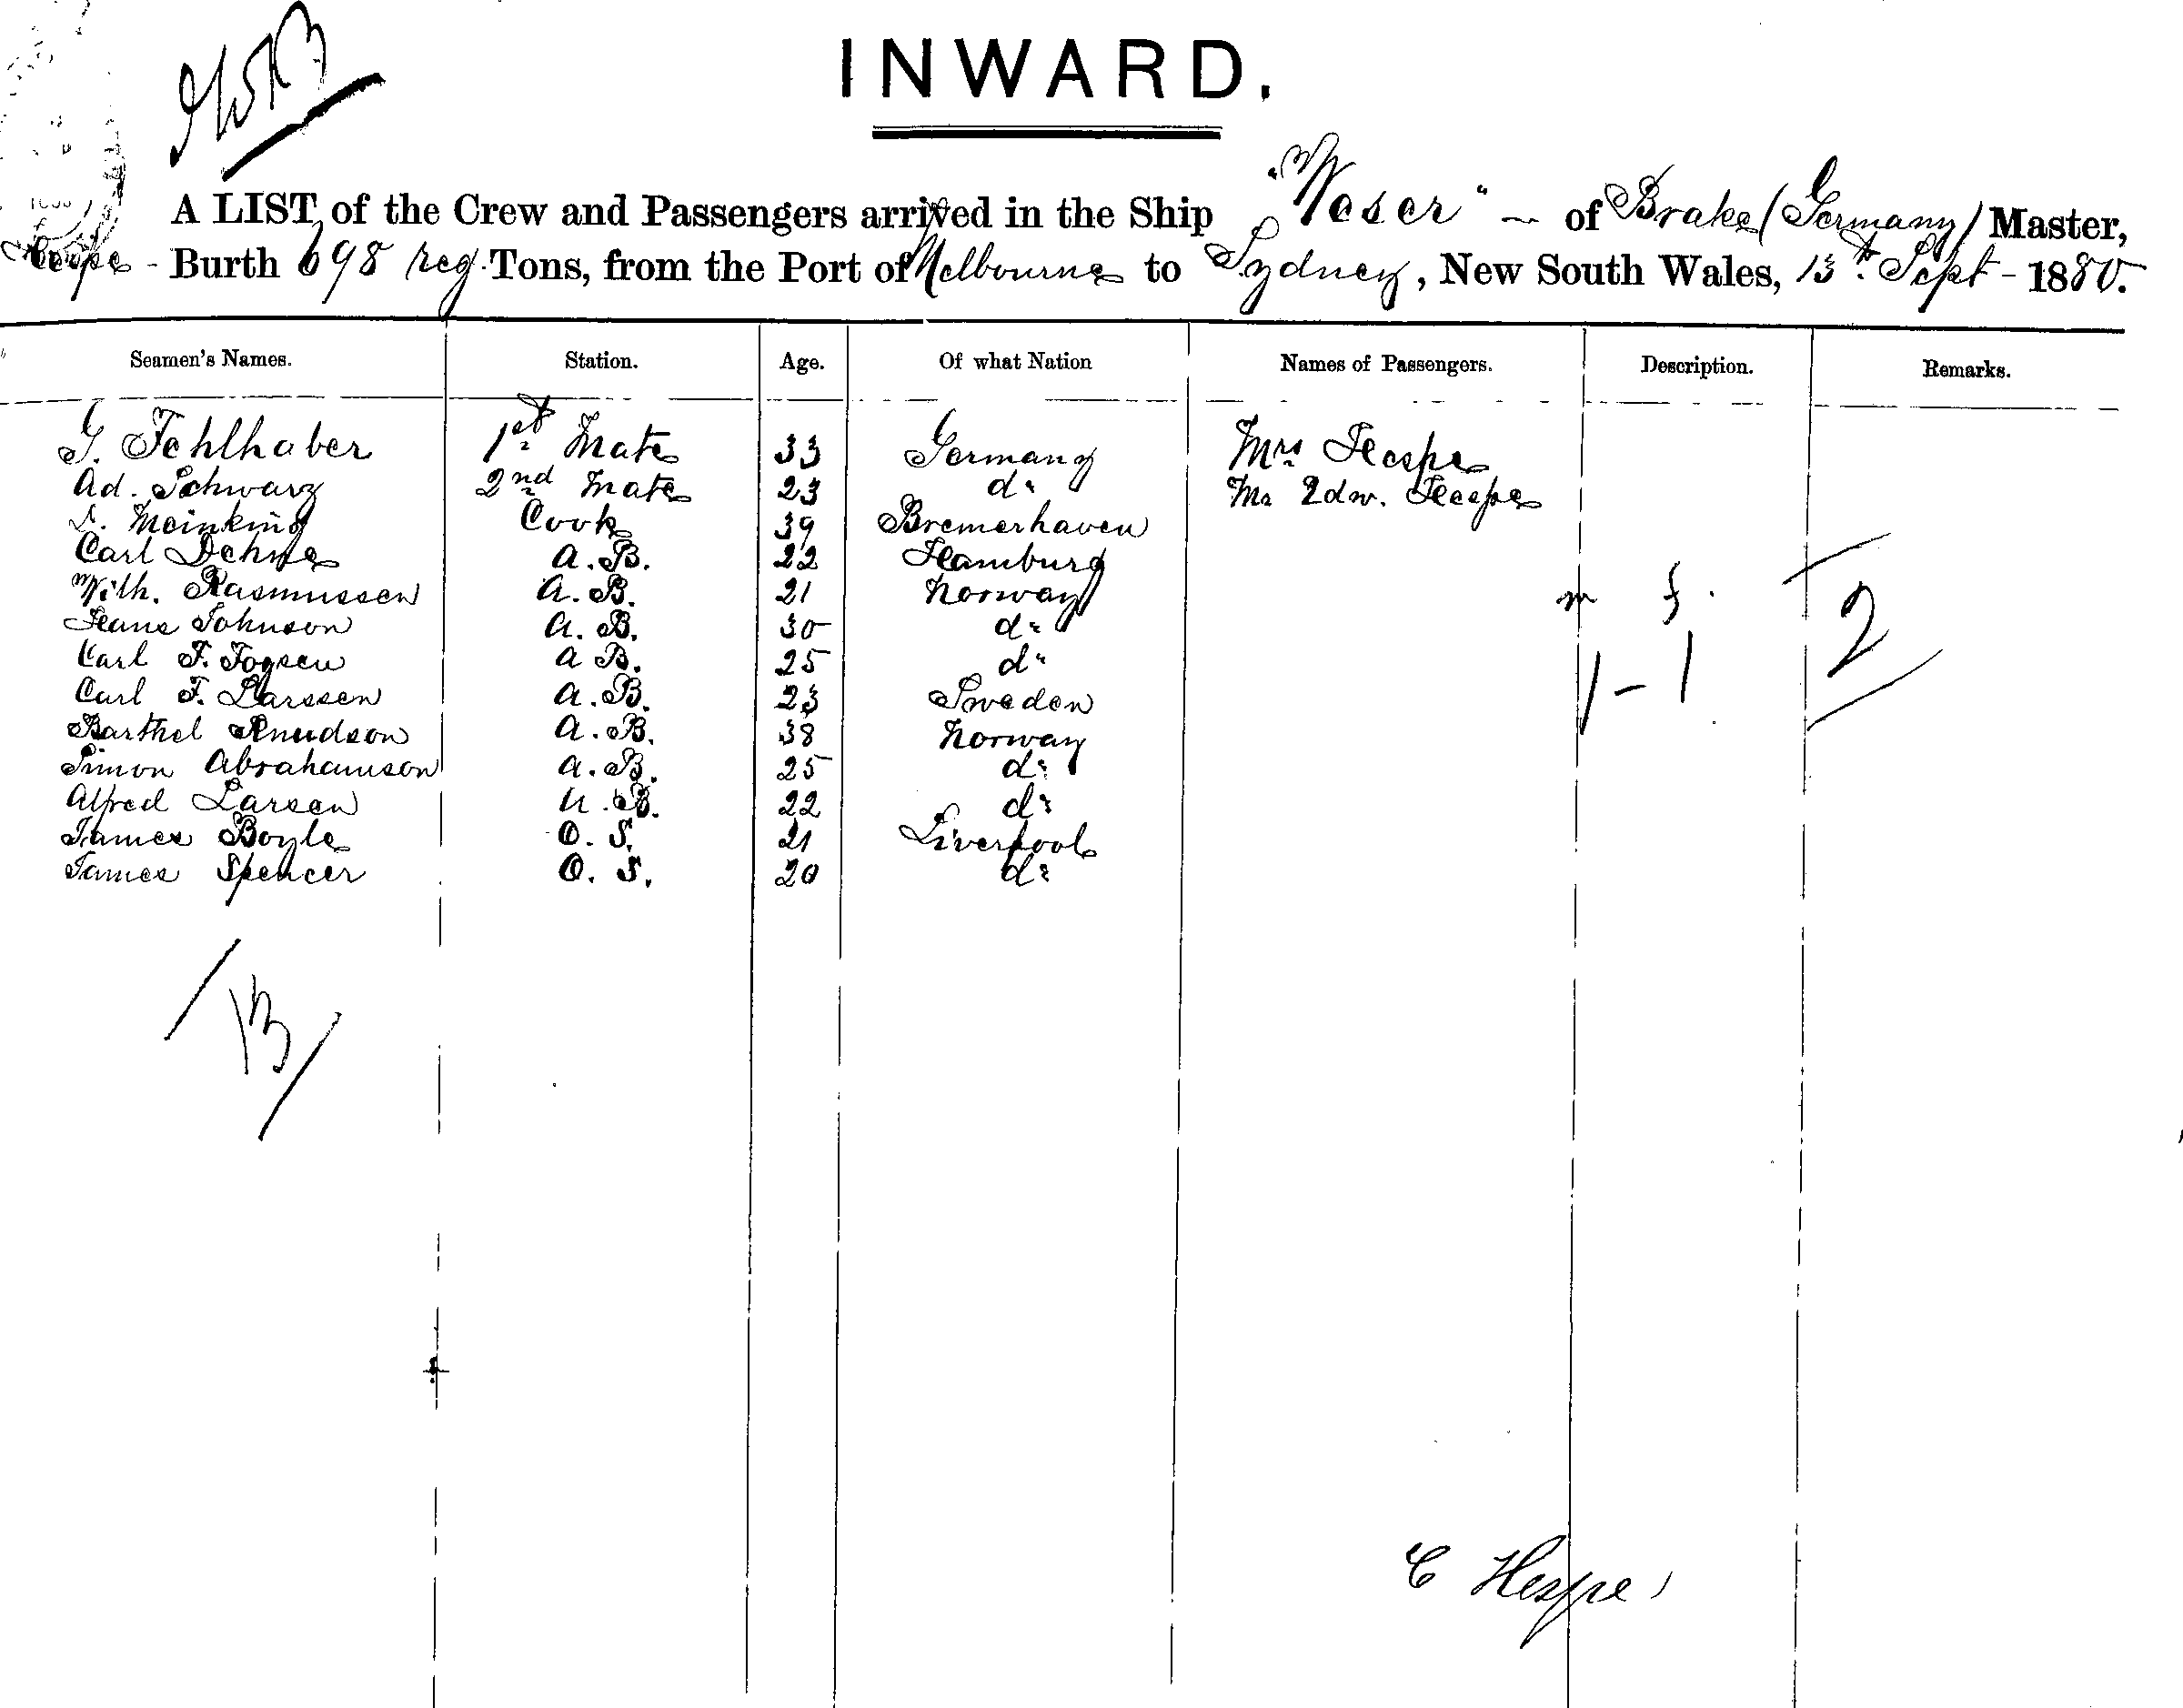 INWARD.
A LIST of the Crew and Passengers arrived in the Ship "Weser" of Brake (Germany) Master,
Hespe - Burth 698 reg. Tons, from the Port of Melbourne to Sydney, New South Wales, 13th Sept - 1880.
Seamen's Names. Station. Age. Of what Nation Names of Passengers. Description. Remarks.
G. Fehlhaber 1st Mate 33 Germany Mrs Hespe
Ad. Schwarz 2nd Mate 23 do Mr Edw. Hespe
Meinking Cook 39 Bremerhaven
Carl Dehne A.B. 22 Hamburg
Wilh. Rasmussen A.B. 21 Norway m f.
Hans Johnson A.B. 30 do
Carl F. A B. 25 do 1 - 1 2
Carl F. Larssen A.B. 23 Sweden
Barthel Knudson A.B. 38 Norway
Simon Abrahamson A.B. 25 do
Alfred Larsen A.B. 22 do
James Boyle O. S. 21 Liverpool
James Spencer O. S. 20 do
13
C Hespe